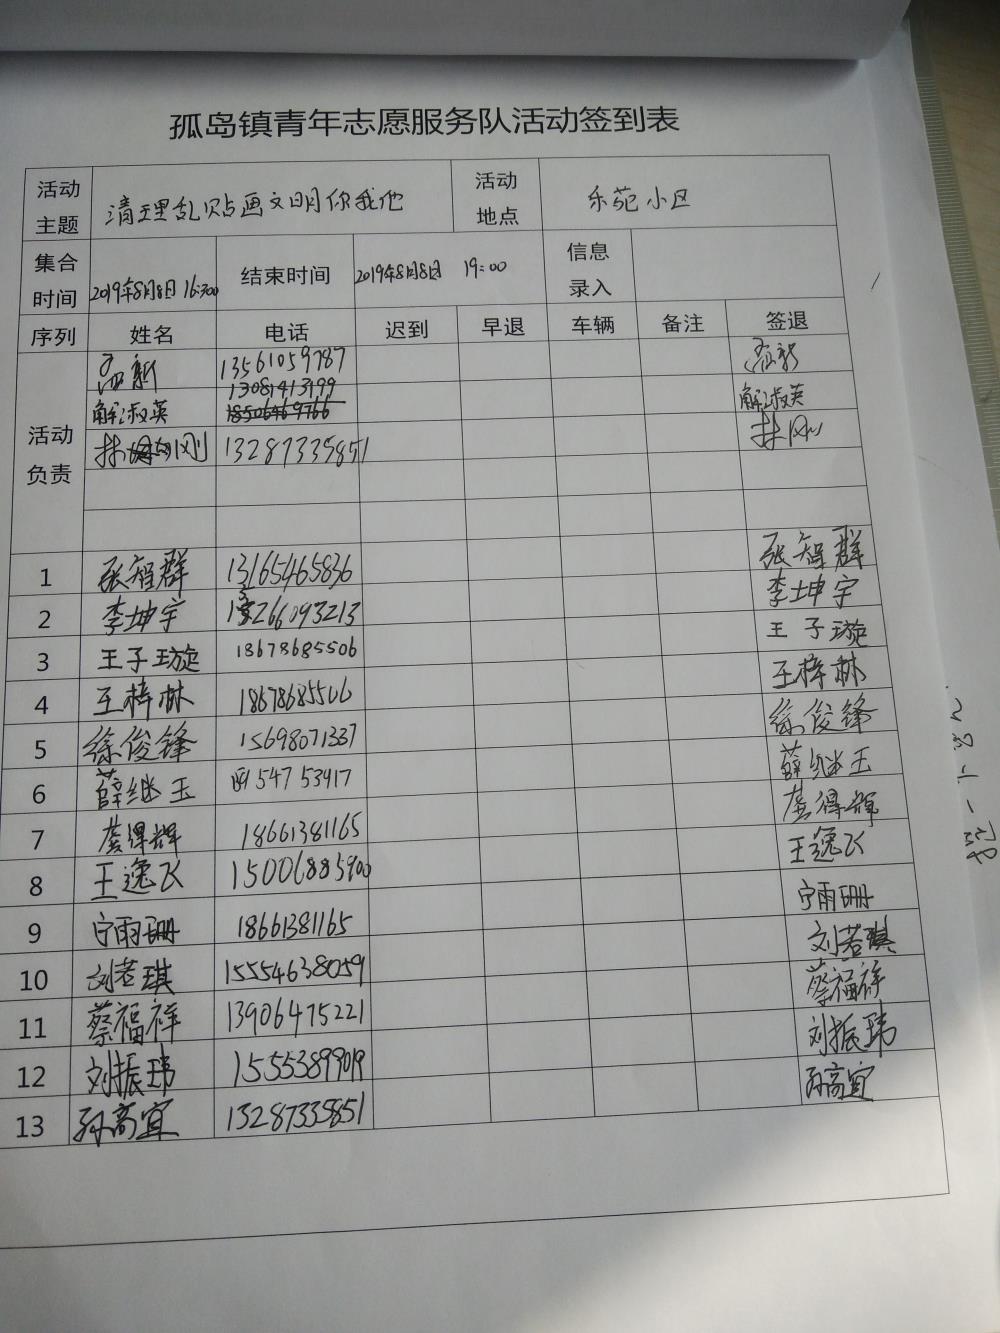 孤岛镇青年志愿服务队活动签到表
活动主题 清理乱贴画文明你我他 活动地点 乐苑小区
集合时间 2019年8月8日 16:300 结束时间 2019年8月8日 19:00 信息录入
序列 姓名 电话 迟到 早退 车辆 备注 签退
活动负责
新 13561059787 新
13081413199
解淑英 18506469766 解淑英
林刚 13287335851 林刚
1 张智群 13165465836 张智群
2 李坤宇 15266093213 李坤宇
3 王子璇 18678685506 王子璇
4 王梓林 18678685506 王梓林
5 徐俊锋 15698071337 徐俊锋
6 薛继玉 547 53417 薛继玉
7 龚得辉 18661381165 龚得辉
8 王逸飞 15006885900 王逸飞
9 宁雨珊 18661381165 宁雨珊
10 刘若琪 15554638059 刘若琪
11 蔡福祥 13906475221 蔡福祥
12 刘振玮 15553899019 刘振玮
13 孙高宜 13287335851 孙高宜